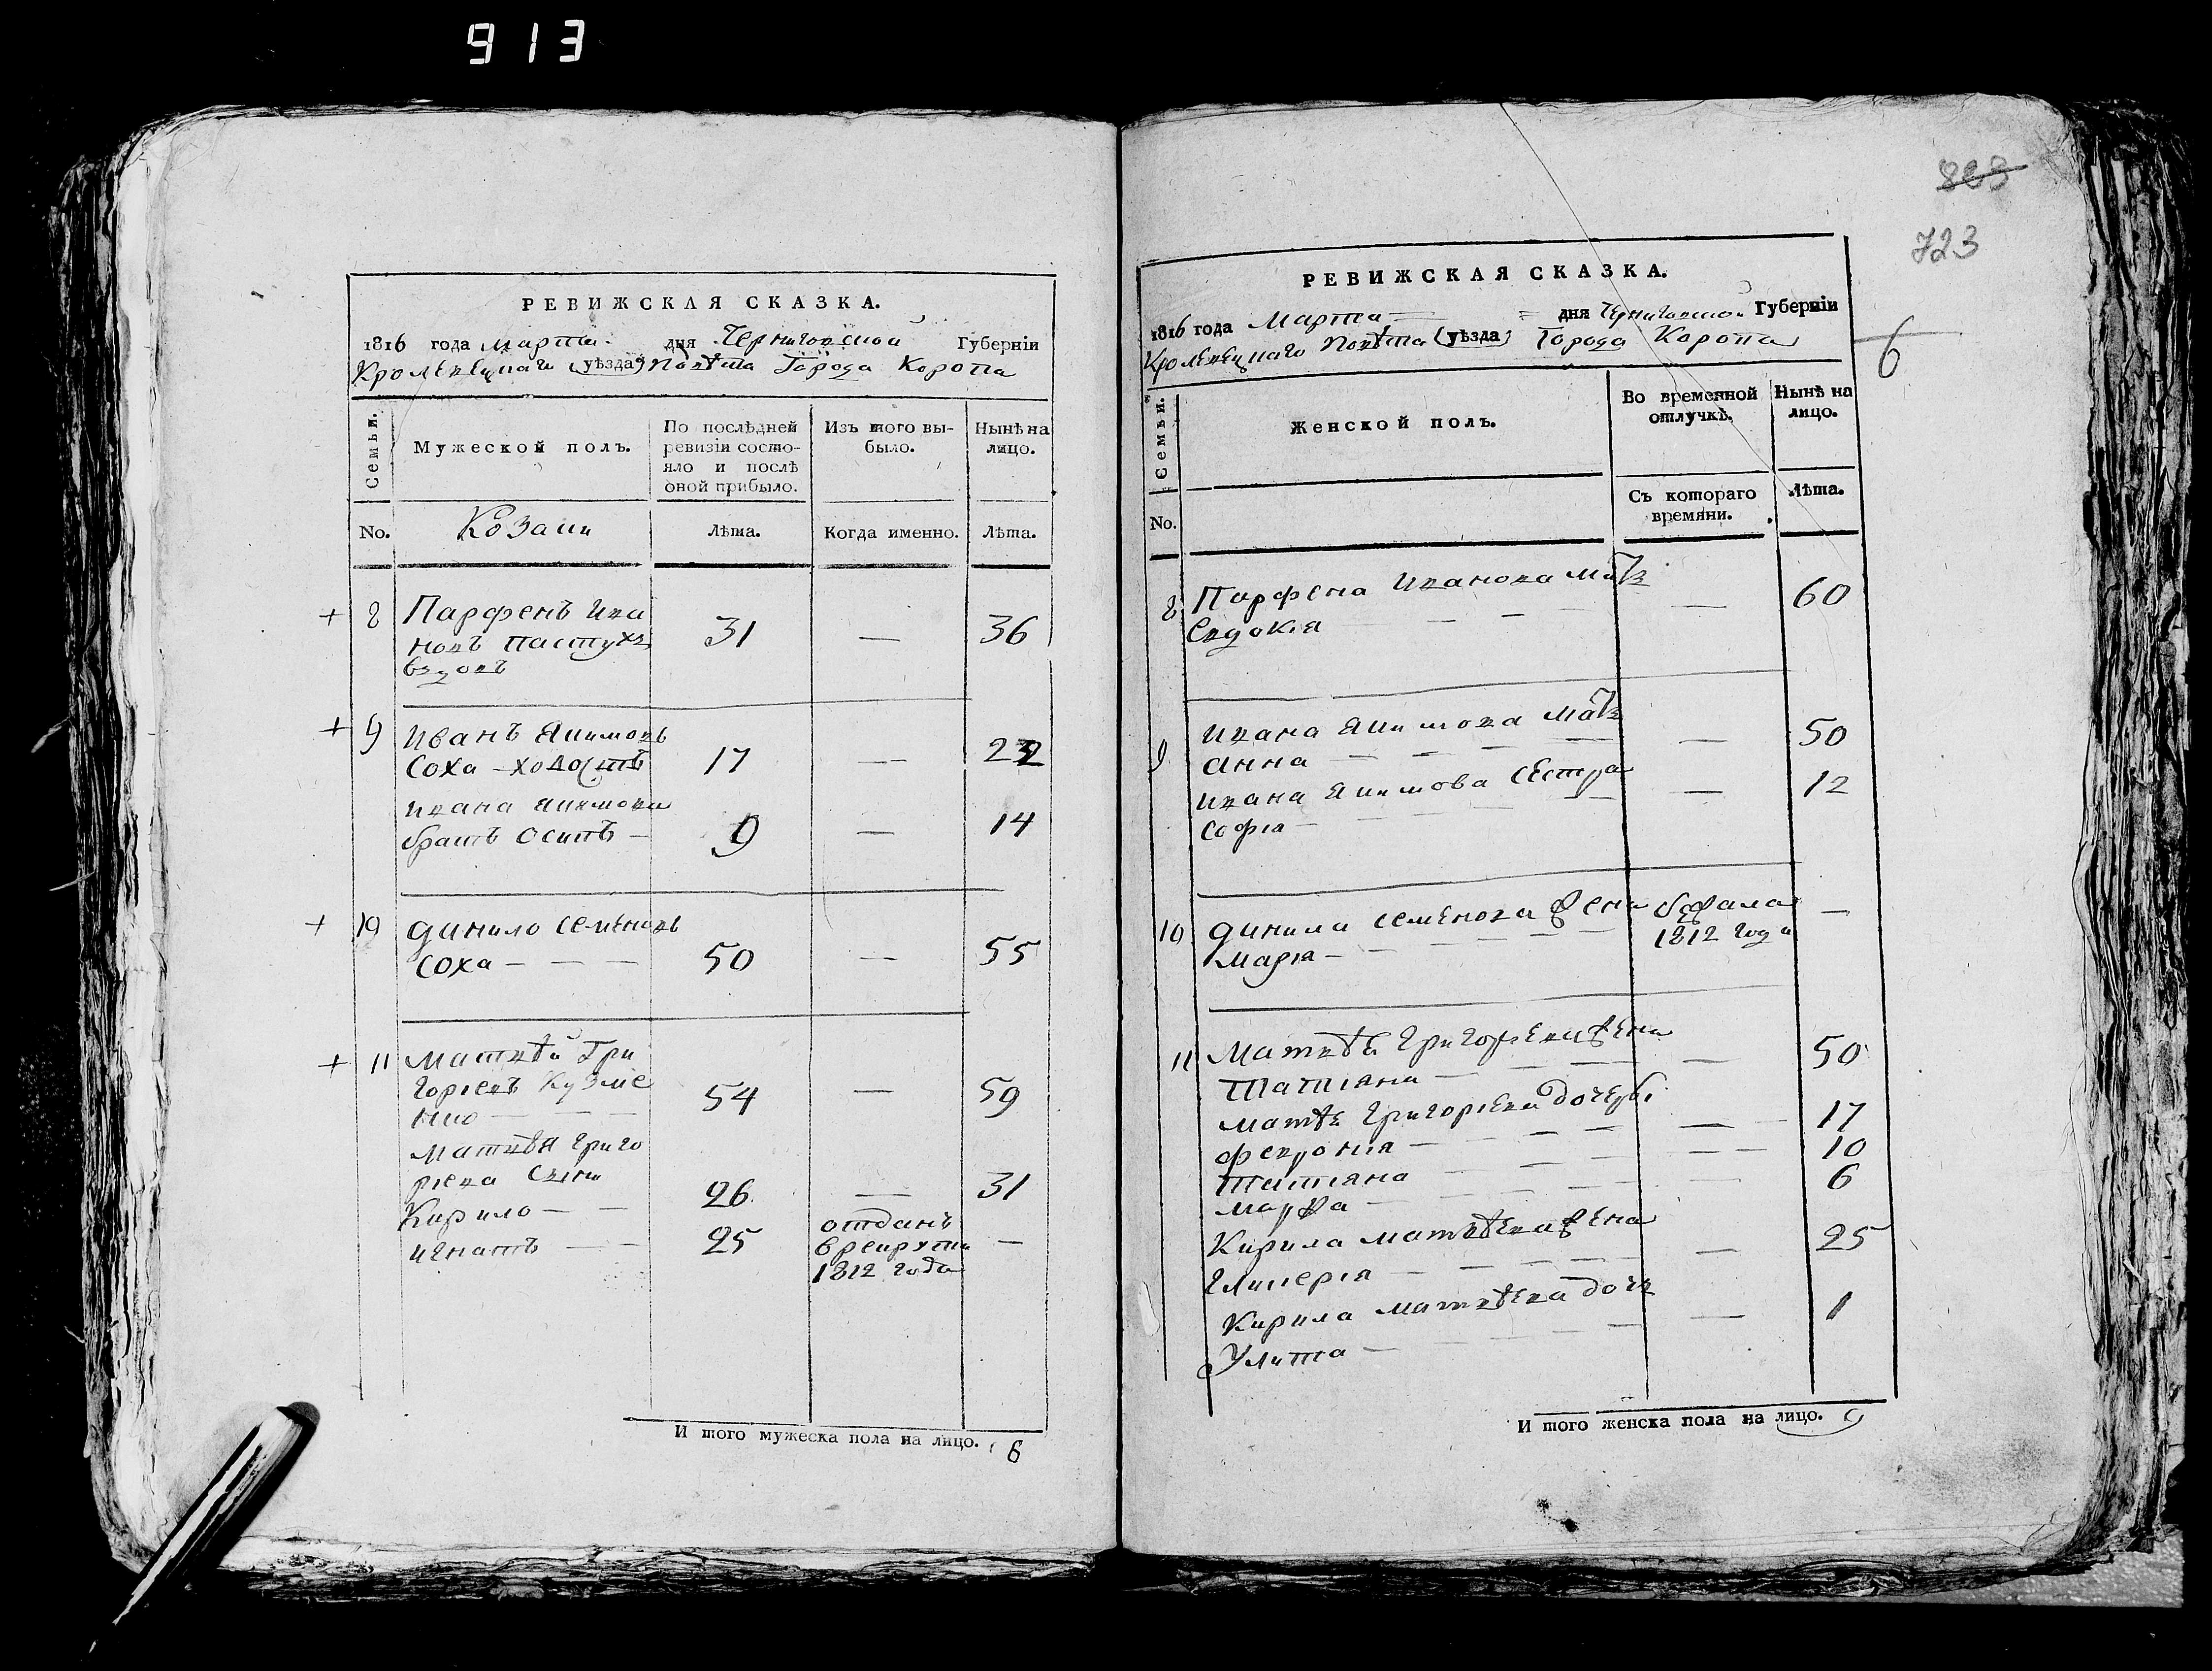 913
РЕВИЖСКАЯ СКАЗКА.
1816 года марта дня Черниговской Губерніи
Кролевецкаго (уѣзда) Повѣта Города Коропа
Семьи.
Мужеской полъ.
По послѣдней
ревизіи состо-
яло и послѣ
оной прибыло.
Изъ того вы-
было.
Нынѣ на
лицо.
No.
Козаки
Лѣта.
Когда именно.
Лѣта.
+ 8 Парфенъ Ива
новъ пастух 31 — 36
+ 9 Иванъ Якимовъ
Соха - ходостъ 17 — 22
Ивана Якимова
братъ Осипъ — 9 — 14
+ 10 Данило Семеновъ
Соха — — — 50 — 55
+ 11 Матвѣй Гри
горіевъ Кузме
нко — — — 54 — 59
Матвѣя Григо
ріева Сини
Кирило — — 26 — 31
Игнатъ — — 25 отданъ —
в рекруты
1812 года
И того мужеска пола на лицо. 6
823
723
6
РЕВИЖСКАЯ СКАЗКА.
1816 года Марта — дня Черниговской Губерніи
Кролевецкаго Повѣта (уѣзда) Города Коропа
Семьи.
Женской полъ.
Во временной
отлучкѣ.
Нынѣ на
лицо.
No.
Съ котораго
времяни.
Лѣта.
8 Парфена Иванова мать — 60
Евдокія — —
9 Ивана Якимова мать — 50
Анна — — — —
Ивана Якимова Сестра — 12
Софія —
10 Данила Семенова жена бѣжала —
Марія — 1812 года
11 Матвѣя Григорьева жена — 50
Татіяна —
Матвѣя Григоріева дочери
Февронія — — 17
Татіяна — — — 10
Марфа — — 6
Кирила Матвѣева жена — 25
Гликерія —
Кирила Матвѣева дочь — 1
Улита —
И того женска пола на лицо. 9